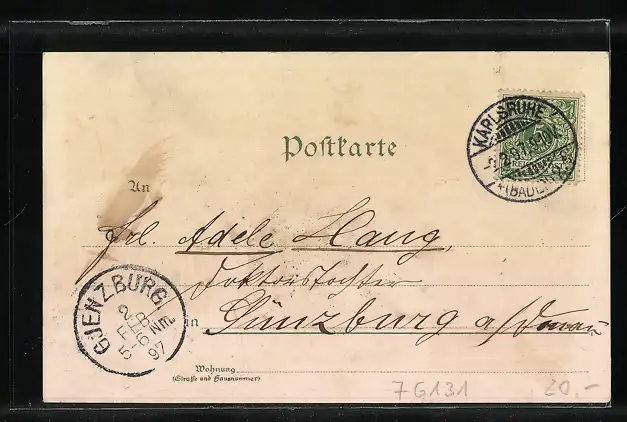 Postkarte
KARLSRUHE
(BADEN)
An
Frl. Adele Haug,
Doktorstochter
in Günzburg a/Donau
GUENZBURG
5 FEB
2-3
Nm
97
Wohnung
(Straße und Hausnummer)
7G131
20.-